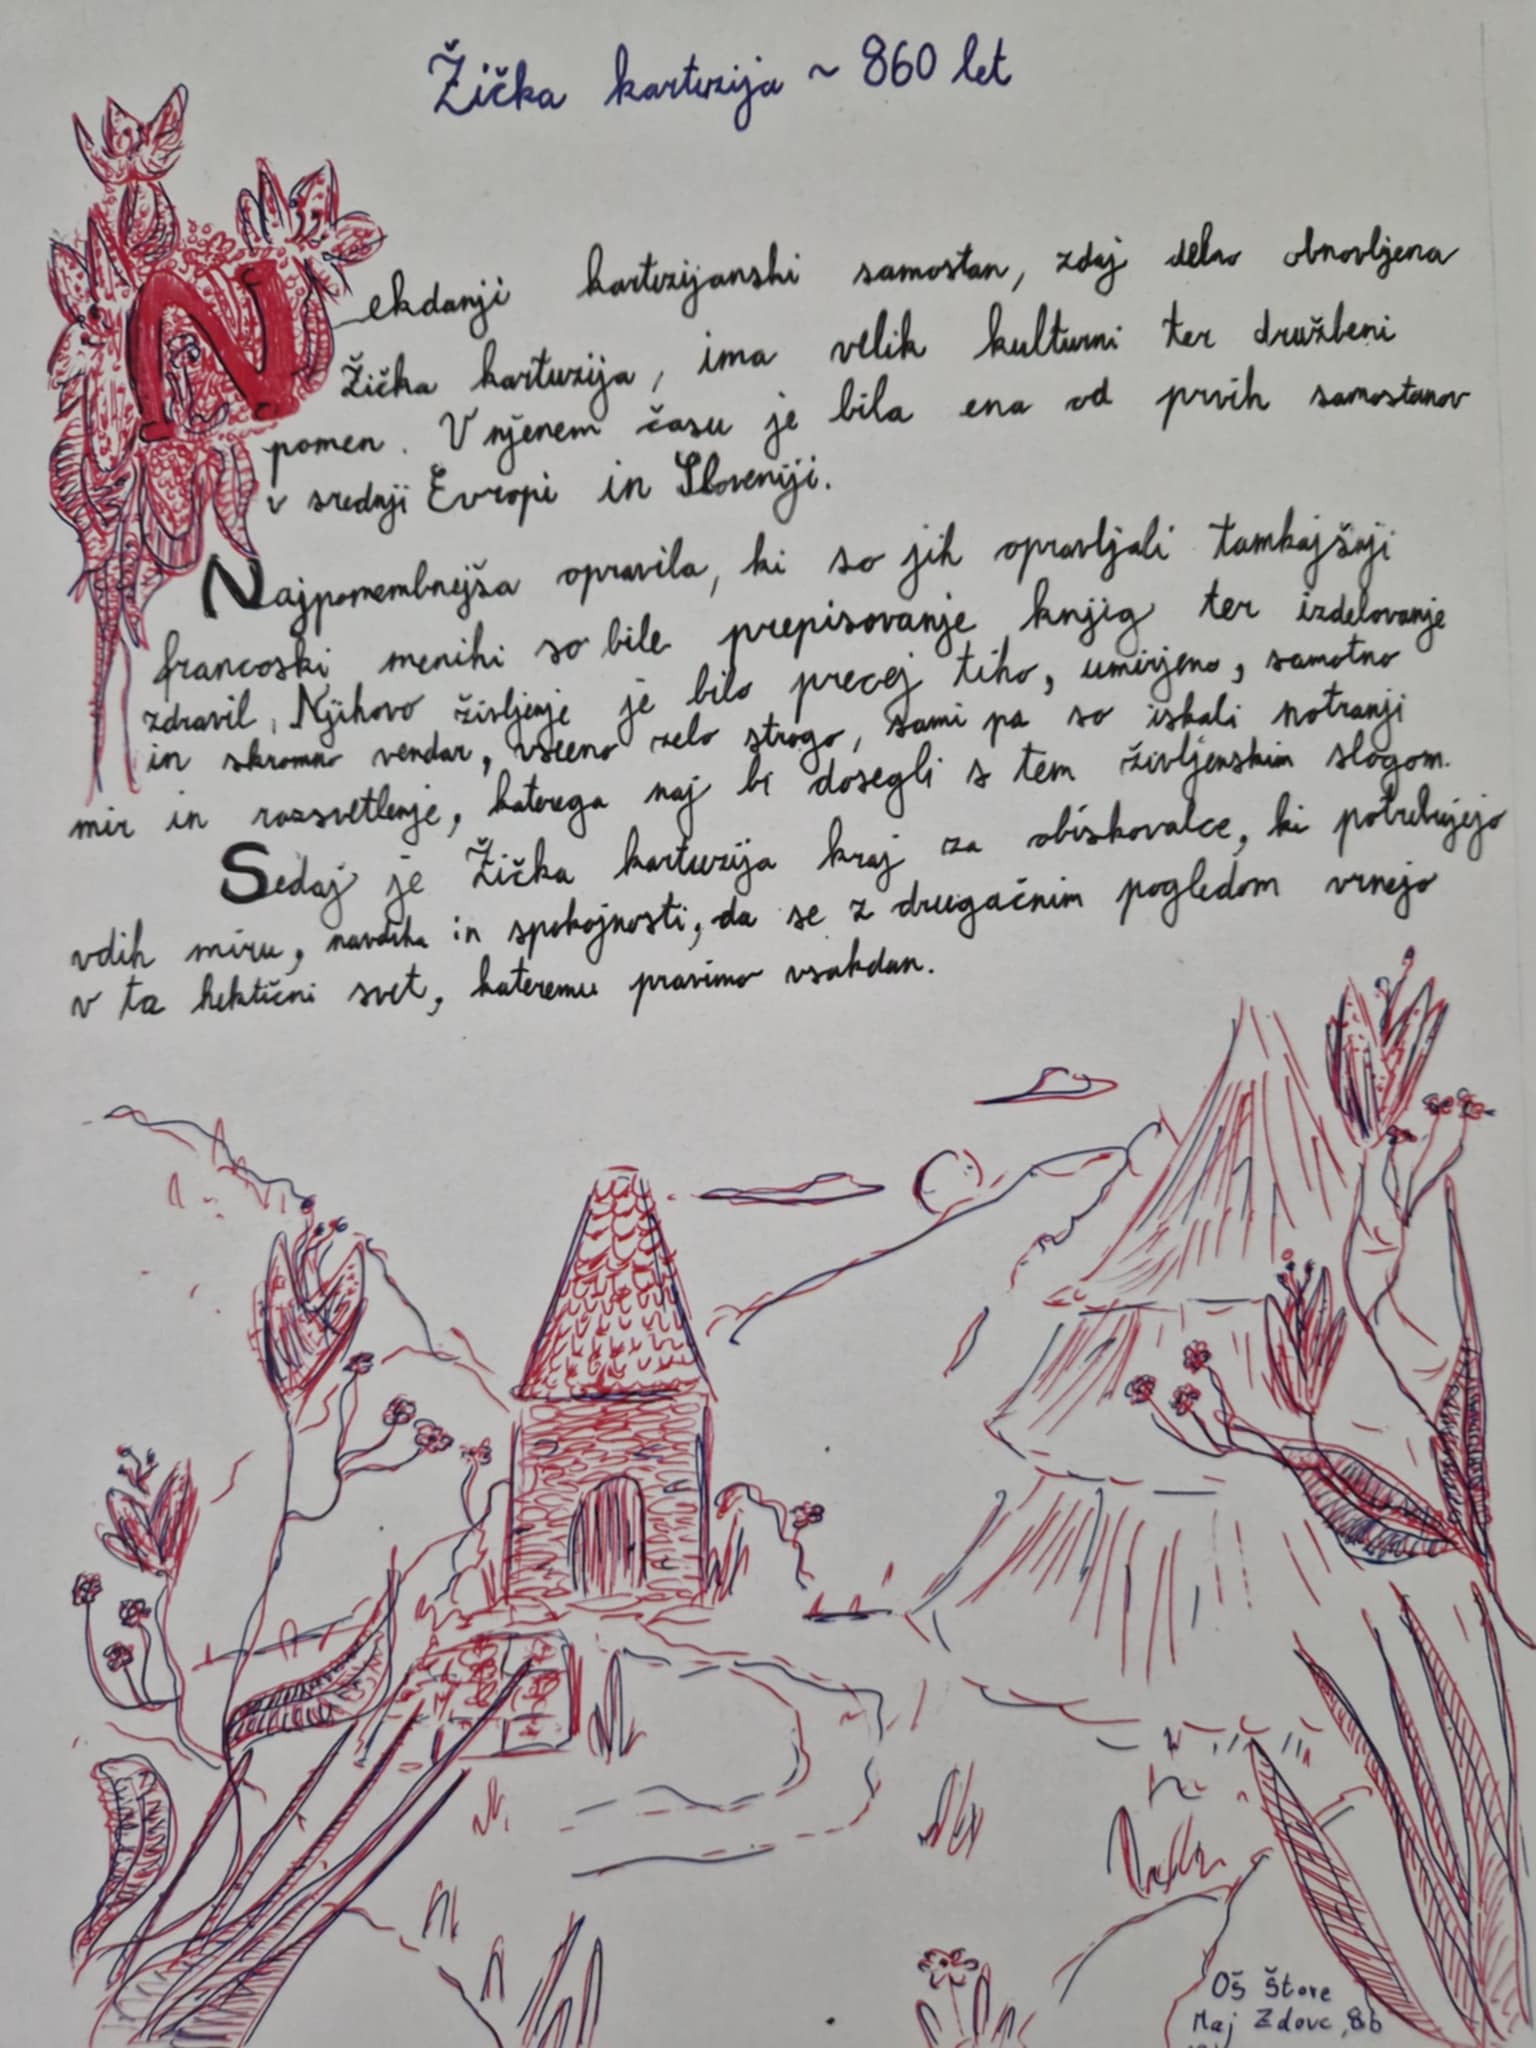 Žička kartuzija ~ 860 let
Nekdanji kartuzijanski samostan, zdaj delno obnovljena
Žička kartuzija, ima velik kulturni ter družbeni
pomen. V njenem času je bila ena od prvih samostanov
v srednji Evropi in Sloveniji.
Najpomembnejša opravila, ki so jih opravljali tamkajšnji
francoski menihi so bile prepisovanje knjig ter izdelovanje
zdravil. Njihovo življenje je bilo precej tiho, umirjeno, samotno
in skromno vendar, vseeno zelo strogo, sami pa so iskali notranji
mir in razsvetlenje, katerega naj bi dosegli s tem življenskim slogom.
Sedaj je Žička kartuzija kraj za obiskovalce, ki potrebujejo
vdih miru, navdiha in spokojnosti, da se z drugačnim pogledom vrnejo
v ta hektični svet, kateremu pravimo vsakdan.
OŠ Štore
Maj Zdovc, 8b